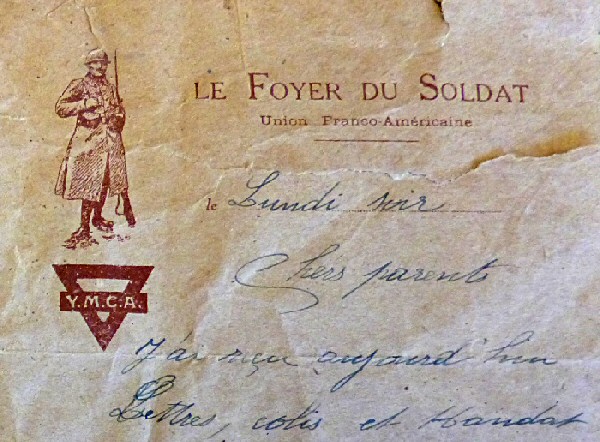 LE FOYER DU SOLDAT
Union Franco-Américaine
le Lundi soir
Y.M.C.A.
Chers parents
J'ai reçu aujourd'hui
Lettres, colis et Mandat